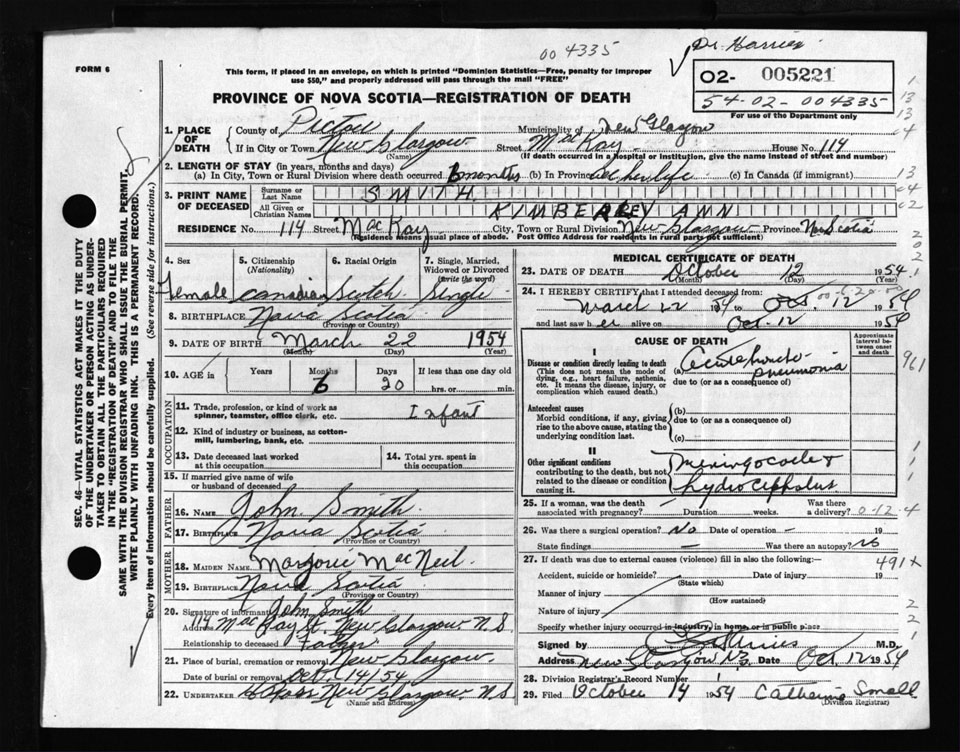 00 4335
Dr. Harries
FORM 6
This form, if placed in an envelope, on which is printed "Dominion Statistics—Free, penalty for improper
use $50," and properly addressed will pass through the mail "FREE"
02- 005221
54-02-004335
For use of the Department only
PROVINCE OF NOVA SCOTIA—REGISTRATION OF DEATH
1. PLACE OF DEATH
County of Pictou Municipality of New Glasgow
If in City or Town New Glasgow Street MacKay House No. 114
(Name) (If death occurred in a hospital or institution, give the name instead of street and number)
2. LENGTH OF STAY (in years, months and days)
(a) In City, Town or Rural Division where death occurred 6 months (b) In Province all her life (c) In Canada (if immigrant)
3. PRINT NAME OF DECEASED
Surname or Last Name SMITH
All Given or Christian Names KIMBERLEY ANN
RESIDENCE No. 114 Street MacKay City, Town or Rural Division New Glasgow Province N. Scotia
(Residence means usual place of abode. Post Office Address for residents in rural parts not sufficient)
4. Sex
Female
5. Citizenship
(Nationality)
Canadian
6. Racial Origin
Scotch
7. Single, Married, Widowed or Divorced
(write the word)
Single
8. BIRTHPLACE Nova Scotia
(Province or Country)
9. DATE OF BIRTH March 22 1954
(Month) (Day) (Year)
10. AGE in
Years Months Days If less than one day old
6 20 hrs. or min.
OCCUPATION
11. Trade, profession, or kind of work as
spinner, teamster, office clerk, etc. Infant
12. Kind of industry or business, as cotton-
mill, lumbering, bank, etc.
13. Date deceased last worked
at this occupation
14. Total yrs. spent in
this occupation
15. If married give name of wife
or husband of deceased
FATHER
16. Name John Smith
17. Birthplace Nova Scotia
(Province or Country)
MOTHER
18. MAIDEN NAME Marjorie MacNeil
19. BIRTHPLACE Nova Scotia
(Province or Country)
20. Signature of informant John Smith
Address 114 MacKay St. New Glasgow N.S.
Relationship to deceased Father
21. Place of burial, cremation or removal New Glasgow
Date of burial or removal Oct. 14/54
22. UNDERTAKER New Glasgow N.S
(Name and address)
MEDICAL CERTIFICATE OF DEATH
23. DATE OF DEATH October 12 1954
(Month) (Day) (Year)
24. I HEREBY CERTIFY that I attended deceased from:
March 22 1954 to Oct. 12 1954
and last saw her alive on Oct. 12 1954
CAUSE OF DEATH
Approximate interval between onset and death
I
Disease or condition directly leading to death
(This does not mean the mode of
dying, e.g., heart failure, asthenia,
etc. It means the disease, injury, or
complication which caused death.)
(a) Acute broncho-
pneumonia
due to (or as a consequence of)
Antecedent causes
Morbid conditions, if any, giving
rise to the above cause, stating the
underlying condition last.
(b)
due to (or as a consequence of)
(c)
II
Other significant conditions
contributing to the death, but not
related to the disease or condition
causing it.
Meningocoele &
hydrocephalus
25. If a woman, was the death
associated with pregnancy? Duration weeks. Was there
a delivery? 0-12-4
26. Was there a surgical operation? No Date of operation – 19
State findings — Was there an autopsy? No
27. If death was due to external causes (violence) fill in also the following:- 491X
Accident, suicide or homicide? Date of injury 19
(State which)
Manner of injury
(How sustained)
Nature of injury
Specify whether injury occurred in industry, in home, or in public place
Signed by M.D.
Address New Glasgow N.S. Date Oct. 12 1954
28. Division Registrar's Record Number
29. Filed October 14 1954 Catherine Small
(Division Registrar)
SEC. 46—VITAL STATISTICS ACT MAKES IT THE DUTY
OF THE UNDERTAKER OR PERSON ACTING AS UNDER-
TAKER TO OBTAIN ALL THE PARTICULARS REQUIRED
IN THE "REGISTRATION OF DEATH" AND TO FILE THE
SAME WITH THE DIVISION REGISTRAR WHO SHALL ISSUE THE BURIAL PERMIT.
WRITE PLAINLY WITH UNFADING INK. THIS IS A PERMANENT RECORD.
Every item of information should be carefully supplied. (See reverse side for instructions.)